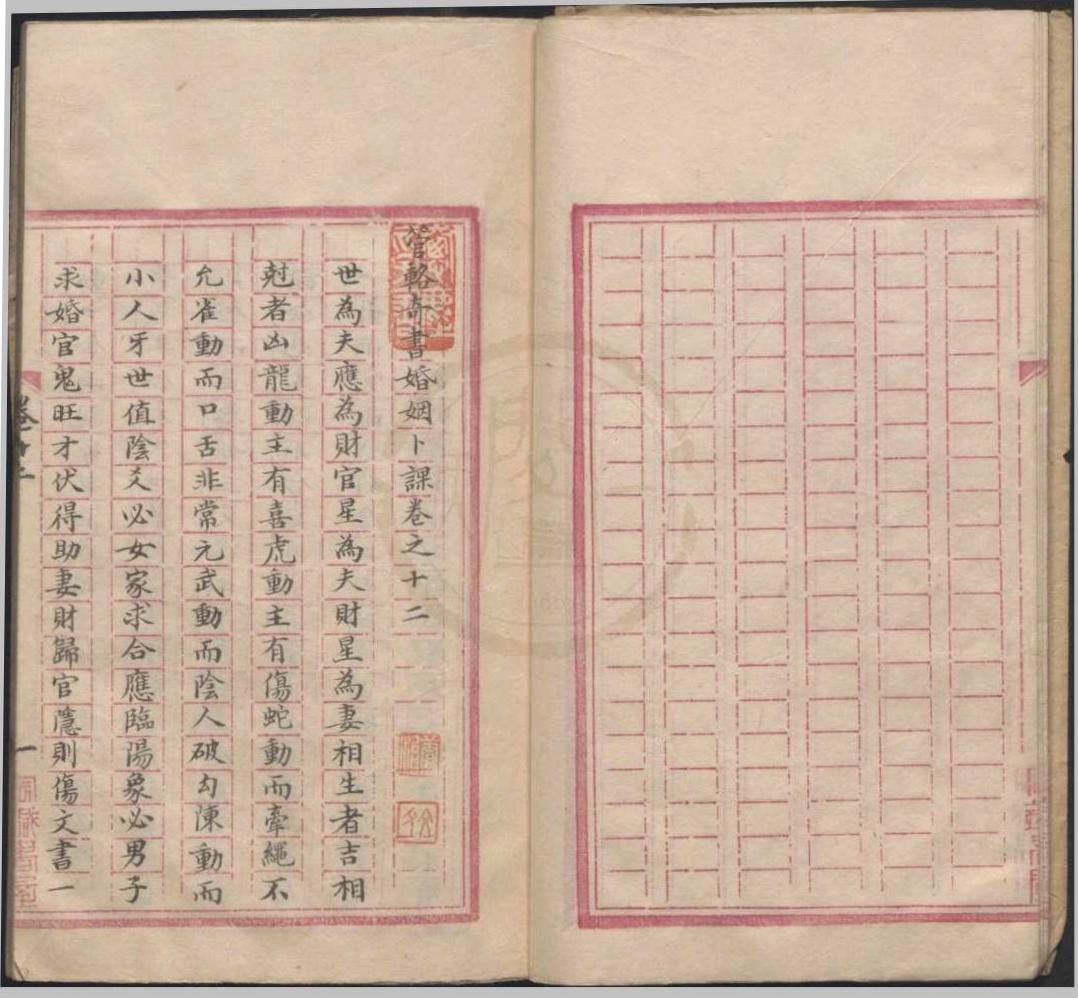 管輅奇書婚姻卜課卷之十二
世為夫應為財官星為夫財星為妻相生者吉相
尅者凶龍動主有喜虎動主有傷蛇動而牽繩不
允雀動而口舌非常元武動而陰人破勾陳動而
小人牙世值陰爻必女家求合應臨陽象必男子
求婚官鬼旺才伏得助妻財歸官隱則傷文書一
卷十二
一